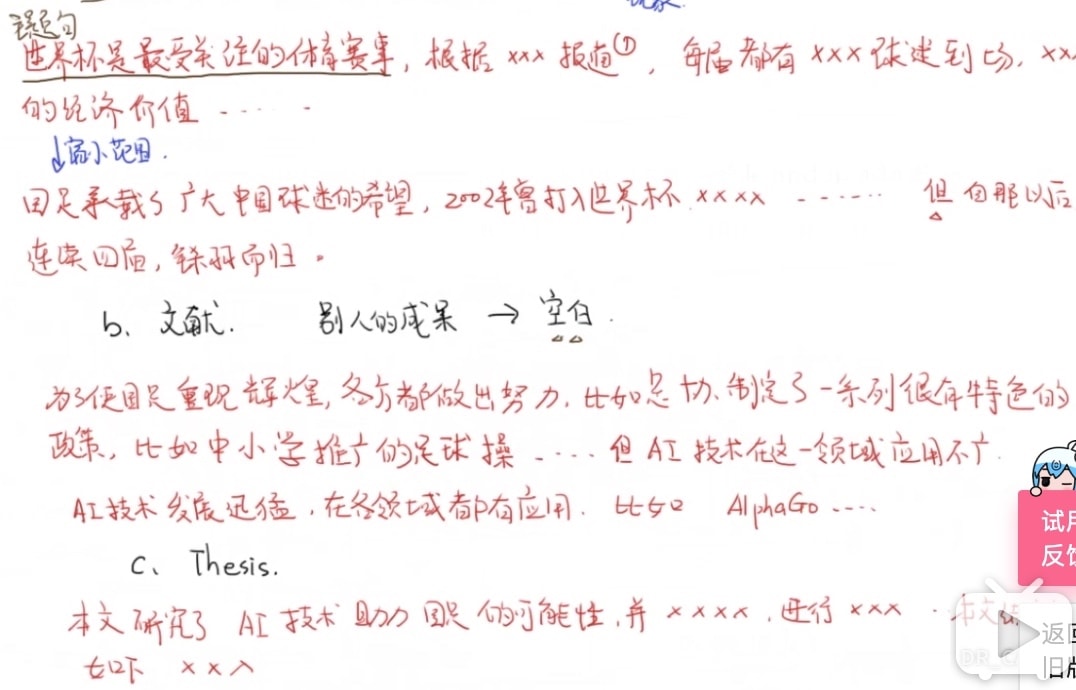 疑问句
世界杯是最受关注的体育赛事，根据 xxx 报道①，每届都有 xxx 球迷到场，xx
的经济价值 ......
↓缩小范围.
国足承载了广大中国球迷的希望，2002年曾打入世界杯 xxxx ...... 但自那以后
连续四届，铩羽而归。
b、文献. 别人的成果 → 空白.
为了使国足重现辉煌，各方都做出努力，比如足协、制定了一系列很有特色的
政策，比如中小学推广的足球操 .... 但 AI 技术在这一领域应用不广.
AI技术发展迅猛，在各领域都有应用. 比如 AlphaGo ....
c、Thesis.
本文研究了 AI 技术助力国足的可能性，并 xxxx，进行 xxx . 本文
如下 xxx
试用
反馈
返回
旧版